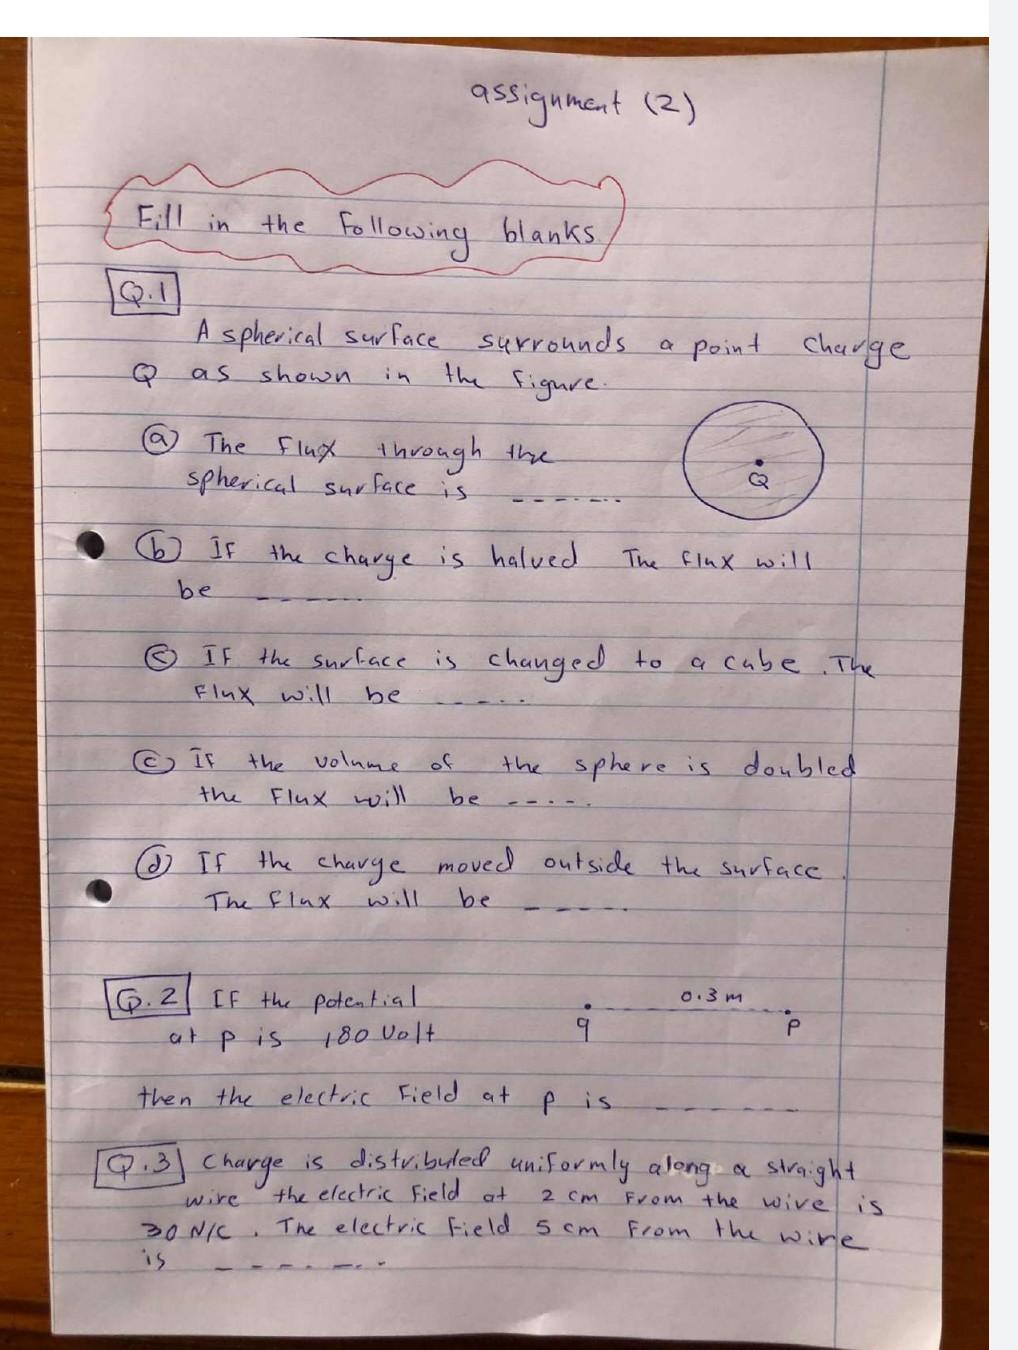 assignment (2)
Fill in the following blanks.
Q.1
A spherical surface surrounds a point charge
Q as shown in the figure.
(a) The flux through the
spherical surface is ------
Q
(b) If the charge is halved The flux will
be ------
(c) If the surface is changed to a cube. The
Flux will be -----
(c) If the volume of the sphere is doubled
the Flux will be -----
(d) If the charge moved outside the surface.
The flux will be -----
Q.2 If the potential
0.3 m
at p is 180 Volt
q
p
then the electric Field at p is ------
Q.3 Charge is distributed uniformly along a straight
wire the electric Field at 2 cm From the wire is
30 N/C. The electric Field 5 cm From the wire
is ------